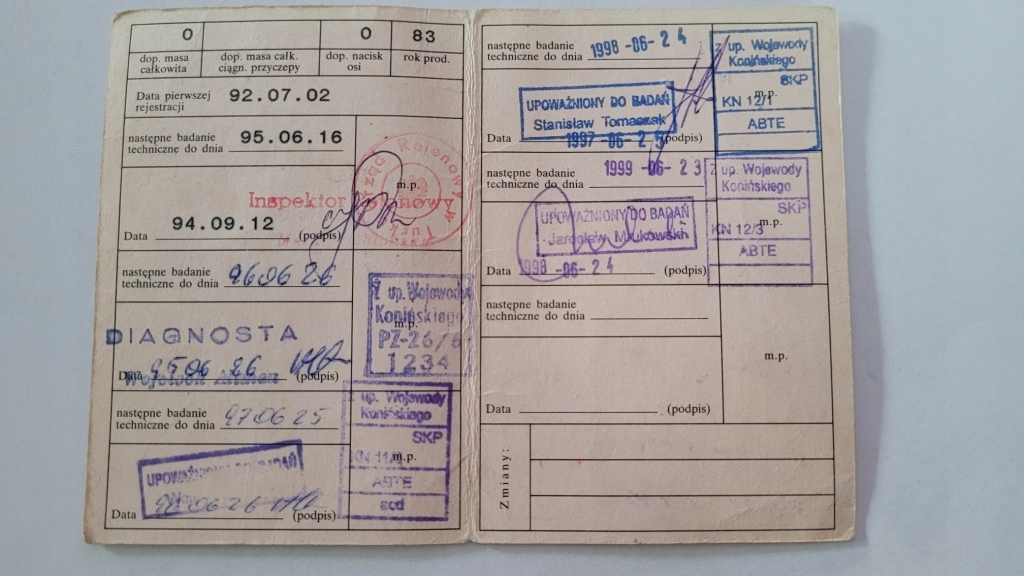 0 0 83
dop. masa całkowita
dop. masa całk. ciągn. przyczepy
dop. nacisk osi
rok prod.
Data pierwszej rejestracji 92.07.02
następne badanie techniczne do dnia 95.06.16
m.p.
Inspektor
Data 94.09.12 (podpis)
następne badanie techniczne do dnia 960626
Z up. Wojewody
Konińskiego
m.p.
PZ-26/6
1234
DIAGNOSTA
Data 950626 (podpis)
następne badanie techniczne do dnia 970625
z up. Wojewody
Konińskiego
SKP
KN 11/
m.p.
ABTE
ecd
UPOWAŻNIONY DO BADAŃ
Data 0626 (podpis)
następne badanie techniczne do dnia 1998-06-24
z up. Wojewody
Konińskiego
SKP
m.p.
KN 12/1
ABTE
UPOWAŻNIONY DO BADAŃ
Stanisław Tomaszak
Data 1997-06-25 (podpis)
następne badanie techniczne do dnia 1999-06-23
z up. Wojewody
Konińskiego
SKP
m.p.
KN 12/3
ABIE
UPOWAŻNIONY DO BADAŃ
Jarosław
Data 1998-06-24 (podpis)
następne badanie techniczne do dnia
m.p.
Data (podpis)
Zmiany: